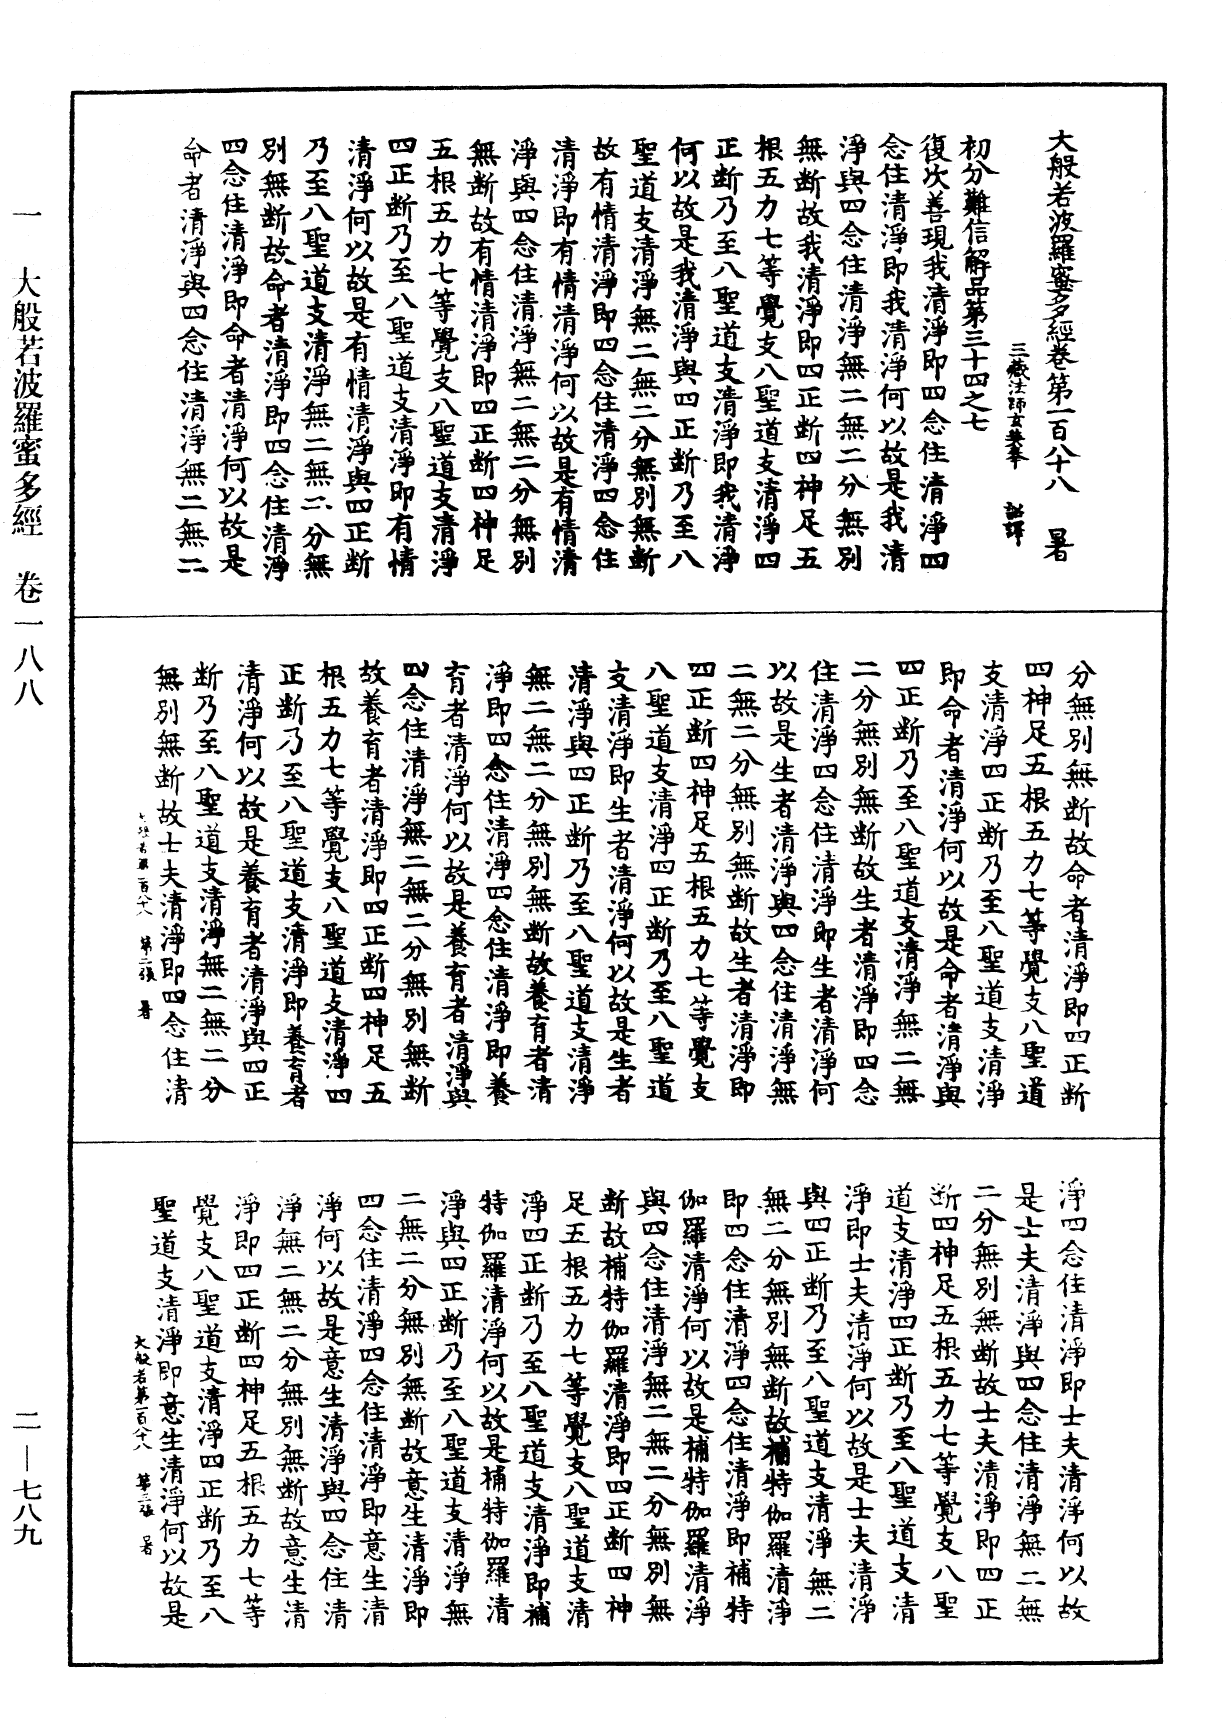 大般若波羅蜜多經卷第一百八十八　暑
三藏法師玄奘奉　詔譯
初分難信解品第三十四之七
復次善現我清淨即四念住清淨四
念住清淨即我清淨何以故是我清
淨與四念住清淨無二無二分無別
無断故我清淨即四正断四神足五
根五力七等覺支八聖道支清淨四
正断乃至八聖道支清淨即我清淨
何以故是我清淨與四正断乃至八
聖道支清淨無二無二分無別無断
故有情清淨即四念住清淨四念住
清淨即有情清淨何以故是有情清
淨與四念住清淨無二無二分無別
無断故有情清淨即四正断四神足
五根五力七等覺支八聖道支清淨
四正断乃至八聖道支清淨即有情
清淨何以故是有情清淨與四正断
乃至八聖道支清淨無二無二分無
別無断故命者清淨即四念住清淨
四念住清淨即命者清淨何以故是
命者清淨與四念住清淨無二無二
分無別無断故命者清淨即四正断
四神足五根五力七等覺支八聖道
支清淨四正断乃至八聖道支清淨
即命者清淨何以故是命者清淨與
四正断乃至八聖道支清淨無二無
二分無別無断故生者清淨即四念
住清淨四念住清淨即生者清淨何
以故是生者清淨與四念住清淨無
二無二分無別無断故生者清淨即
四正断四神足五根五力七等覺支
八聖道支清淨四正断乃至八聖道
支清淨即生者清淨何以故是生者
清淨與四正断乃至八聖道支清淨
無二無二分無別無断故養育者清
淨即四念住清淨四念住清淨即養
育者清淨何以故是養育者清淨與
四念住清淨無二無二分無別無断
故養育者清淨即四正断四神足五
根五力七等覺支八聖道支清淨四
正断乃至八聖道支清淨即養育者
清淨何以故是養育者清淨與四正
断乃至八聖道支清淨無二無二分
無別無断故士夫清淨即四念住清
第二張　暑
淨四念住清淨即士夫清淨何以故
是士夫清淨與四念住清淨無二無
二分無別無断故士夫清淨即四正
断四神足五根五力七等覺支八聖
道支清淨四正断乃至八聖道支清
淨即士夫清淨何以故是士夫清淨
與四正断乃至八聖道支清淨無二
無二分無別無断故補特伽羅清淨
即四念住清淨四念住清淨即補特
伽羅清淨何以故是補特伽羅清淨
與四念住清淨無二無二分無別無
断故補特伽羅清淨即四正断四神
足五根五力七等覺支八聖道支清
淨四正断乃至八聖道支清淨即補
特伽羅清淨何以故是補特伽羅清
淨與四正断乃至八聖道支清淨無
二無二分無別無断故意生清淨即
四念住清淨四念住清淨即意生清
淨何以故是意生清淨與四念住清
淨無二無二分無別無断故意生清
淨即四正断四神足五根五力七等
覺支八聖道支清淨四正断乃至八
聖道支清淨即意生清淨何以故是
大般若第一百八十八　第三張　暑
一　大般若波羅蜜多經　卷一八八
二—七八九